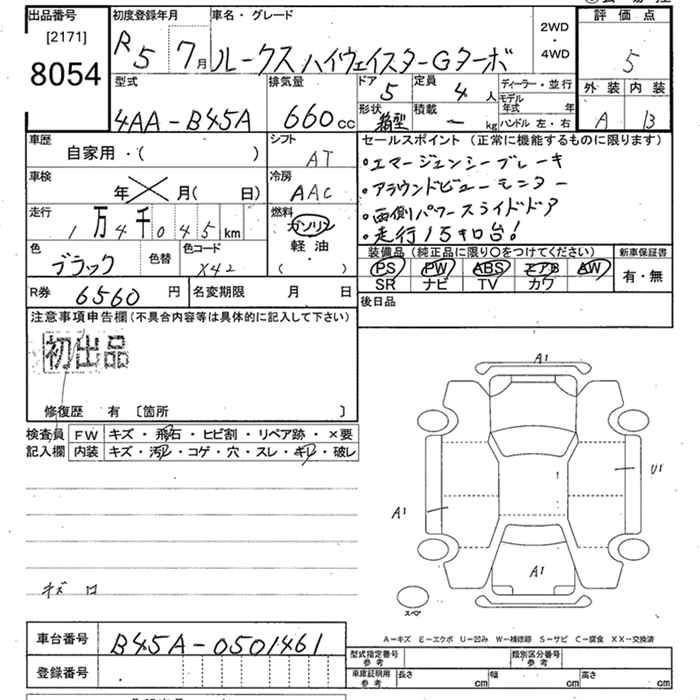 出品番号
[2171]
8054
初度登録年月
R5 7月
車名・グレード
ルークス ハイウェイスターGターボ
2WD
・
4WD
評価点
5
外装 内装
A B
型式
4AA-B45A
排気量
660cc
ドア
5
定員
4人
ディーラー・並行
モデル年式 年
形状
箱型
積載
ー kg
ハンドル 左・右
車歴
自家用・( )
シフト
AT
車検
年 月( 日)
冷房
AAC
走行
1万4千045km
燃料
ガソリン
軽油
( )
色
ブラック
色替
色コード
X42
セールスポイント(正常に機能するものに限ります)
・エマージェンシーブレーキ
・アラウンドビューモニター
・両側パワースライドドア
・走行1.5キロ台!
装備品(純正品に限り○をつけてください)
新車保証書
PS PW ABS エアB AW
有・無
SR ナビ TV カワ
R券 6560円
名変期限 月 日
後日品
注意事項申告欄(不具合内容等は具体的に記入して下さい)
初出品
修復歴 有 〔箇所 〕
検査員記入欄
FW キズ・飛石・ヒビ割・リペア跡・×要
内装 キズ・汚レ・コゲ・穴・スレ・キレ・破レ
キズ ロ
A1
U1
A1
A1
スペア
A-キズ E-エクボ U-凹み W-補修跡 S-サビ C-腐食 XX-交換済
車台番号
B45A-0501461
登録番号
型式指定番号参考
類別区分番号参考
車庫証明用参考
長さ cm
幅 cm
高さ cm